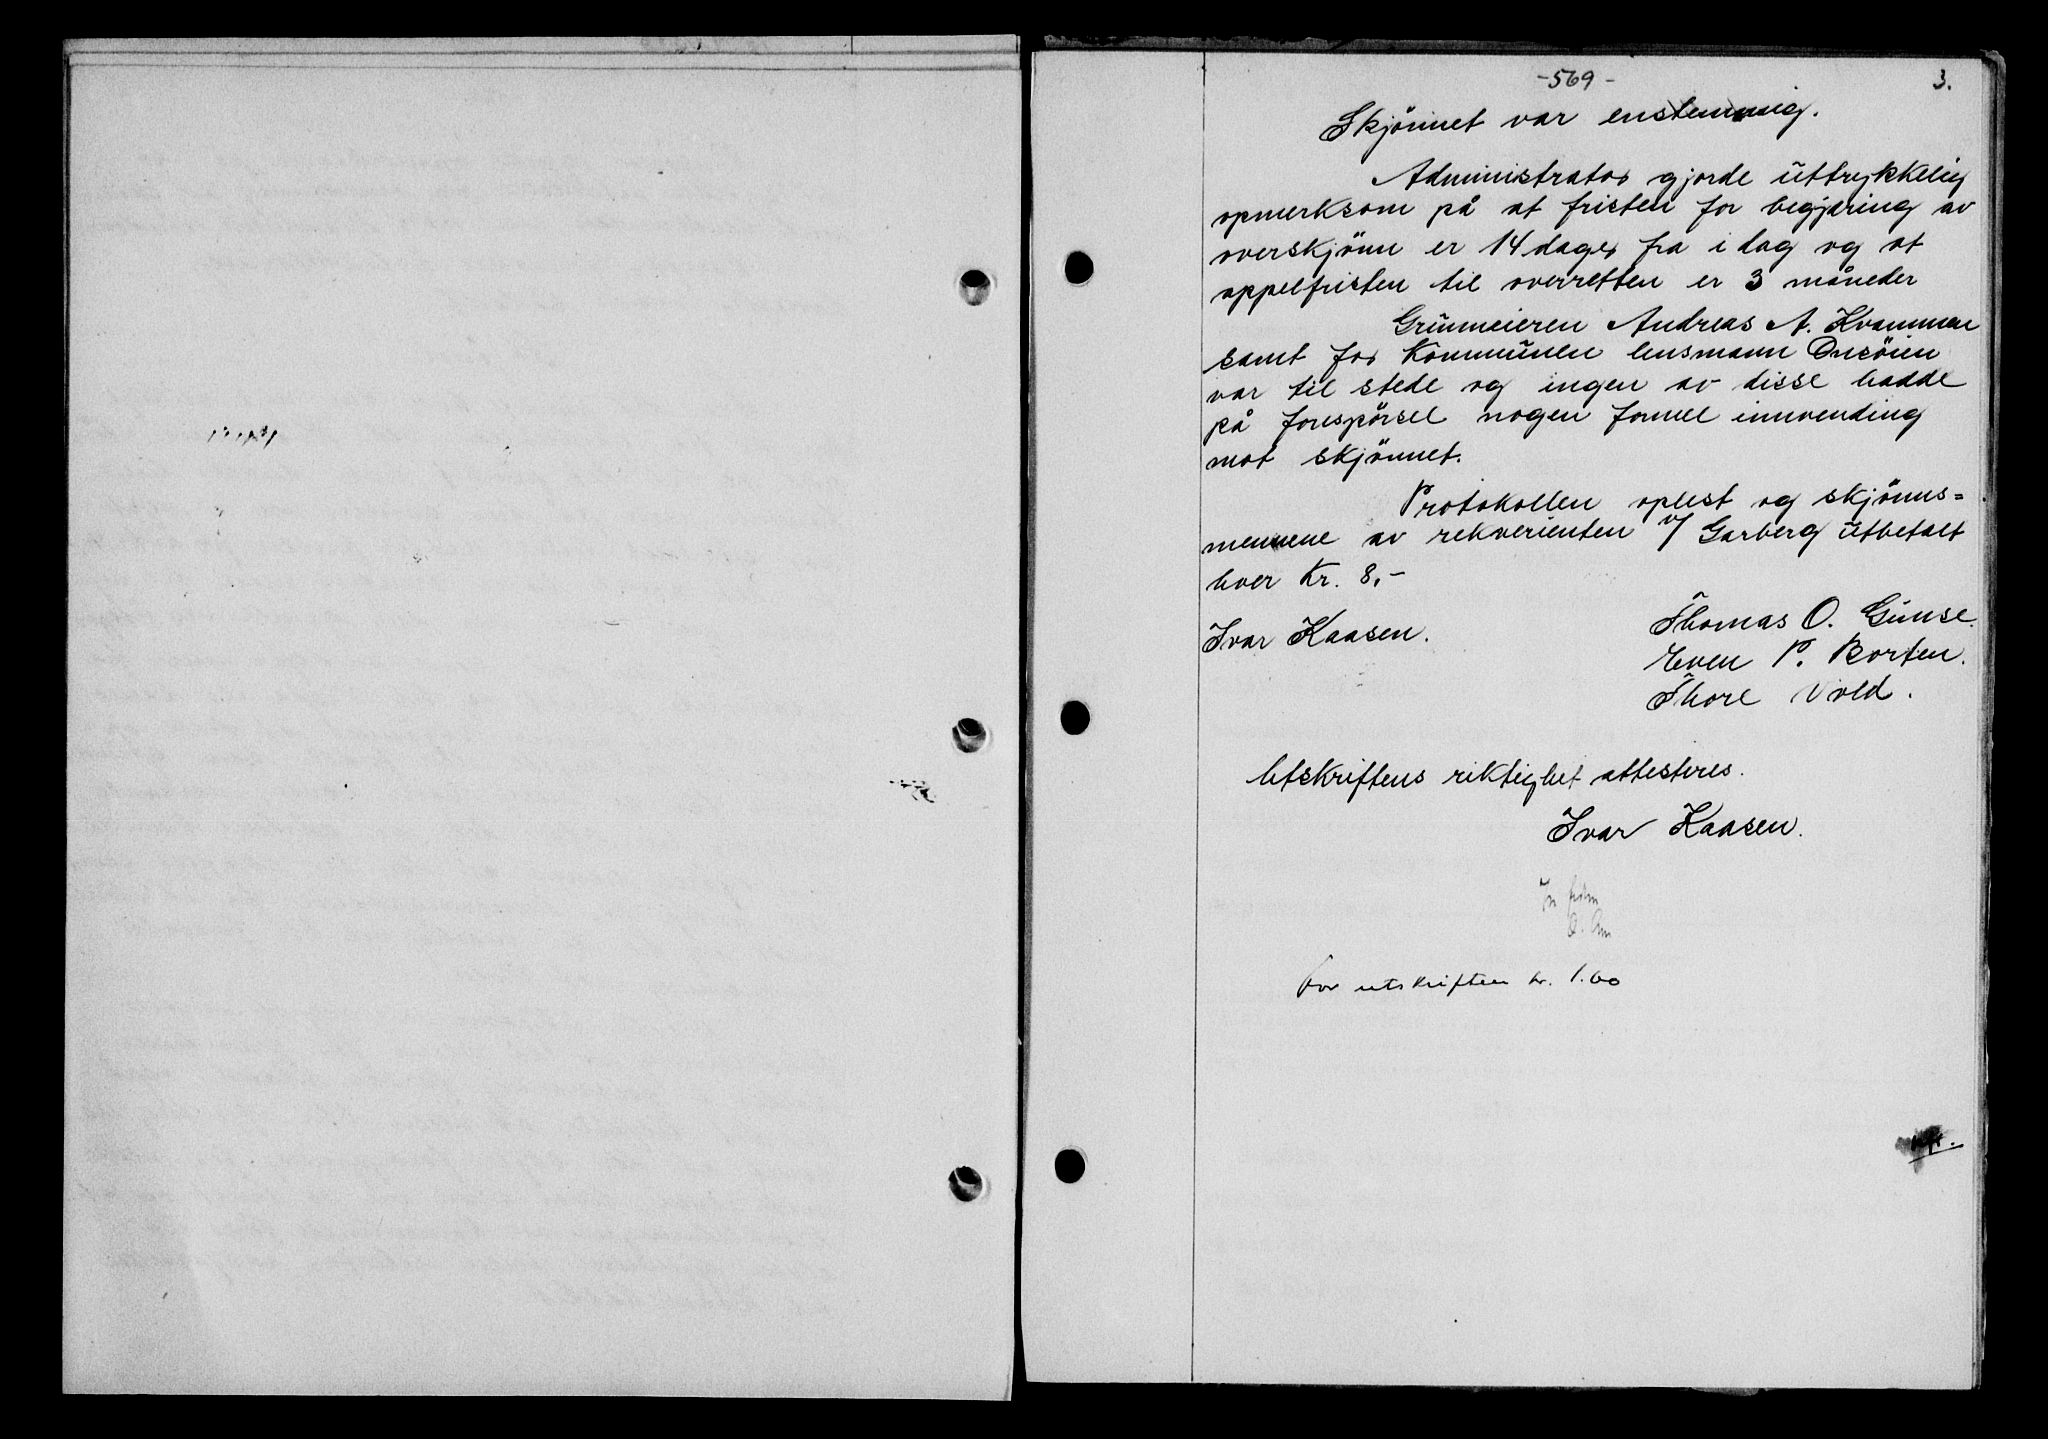 -569-
3.
Skjönnet var enstemmig.
Administrator gjorde uttrykkelig
opmerksom på at fristen for begjæring av
overskjönn er 14 dager fra i dag og at
appelfristen til overretten er 3 måneder
Grunneieren Andreas A. Kvammen
samt for Kommunen lensmann Onsöien
var til stede og ingen av disse hadde
på forespörsel nogen formell innvending
mot skjönnet.
Protokollen oplest og skjönns=
mennene av rekvirenten v/ Garberg utbetalt
hver Kr. 8,-
Ivar Kaasen.
Thomas O. Gimse.
Even P. Borten.
Thore Vold.
Utskriftens riktighet attesteres.
Ivar Kaasen.
For utskriften kr. 1.60